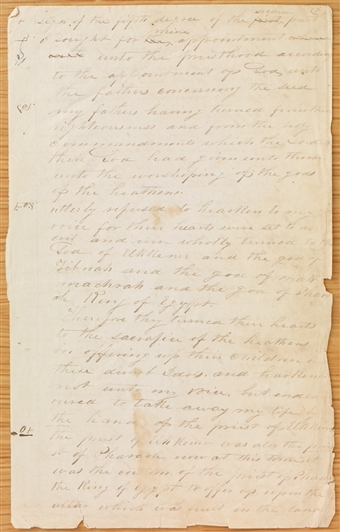 sign of the fifth degree of the part
I sought for mine appointment
unto the priesthood according
to the appointment of God unto
the fathers concerning the seed
my fathers having turned from their
righteousness and from the holy
commandments which the Lord
their God had given unto them
unto the worshiping of the gods
of the heathens
utterly refused to hearken to my
voice for their hearts were set to do
evil and were wholly turned to the
God of Elkkener and the god of
Zibnah and the god of mah
machrah and the god of Pharaoh
King of Egypt
Therefore they turned their hearts
to the sacrifice of the heathens
in offering up their children
their dumb Idols and hearkened
not unto my voice but endeav
ored to take away my life by
the hand of the priest of Elkkener
The priest of Elkkener was also the
st of Pharaoh now at this time it
was the custom of the priest of Pharaoh
the King of Egypt to offer up upon the
altar which was built in the land